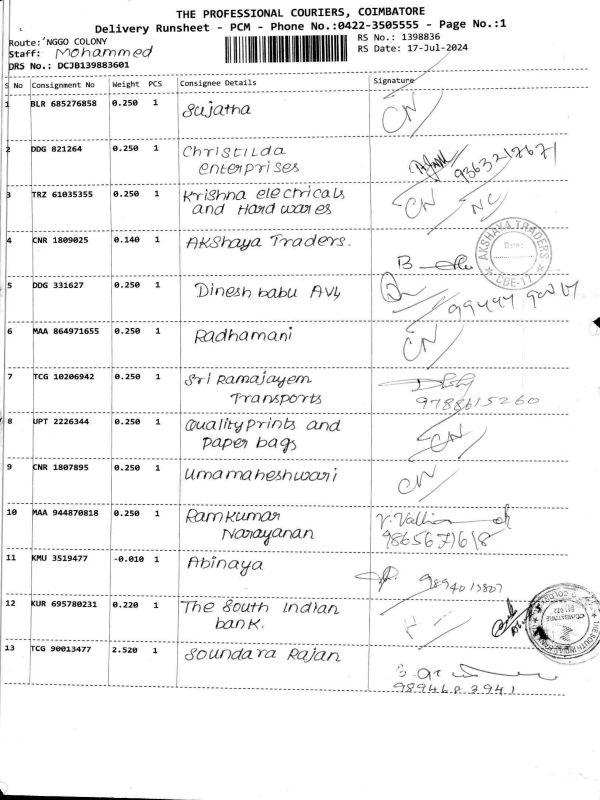 THE PROFESSIONAL COURIERS, COIMBATORE
Delivery Runsheet - PCM - Phone No.:0422-3505555 - Page No.:1
Route: NGGO COLONY
RS No.: 1398836
Staff: Mohammed
RS Date: 17-Jul-2024
DRS No.: DCJB139883601
S No Consignment No Weight PCS Consignee Details Signature
1 BLR 685276858 0.250 1 Sujatha CN
2 DDG 821264 0.250 1 Christilda
enterprises
3 TRZ 61035355 0.250 1 Krishna electricals CN NC
and Hardwares
4 CNR 1809025 0.140 1 AKshaya Traders.
AKSHAYA TRADERS
Date:
CBE-17
5 DDG 331627 0.250 1 Dinesh babu
6 MAA 864971655 0.250 1 Radhamani CN
7 TCG 10206942 0.250 1 Sri Ramajayem
Transports 9788615260
8 UPT 2226344 0.250 1 Quality prints and
paper bags CN
9 CNR 1807895 0.250 1 Umamaheshwari CN
10 MAA 944870818 0.250 1 Ramkumar
Narayanan
11 KMU 3519477 -0.010 1 Abinaya
12 KUR 695780231 0.220 1 The South Indian
bank.
COIMBATORE
13 TCG 90013477 2.520 1 Soundara Rajan